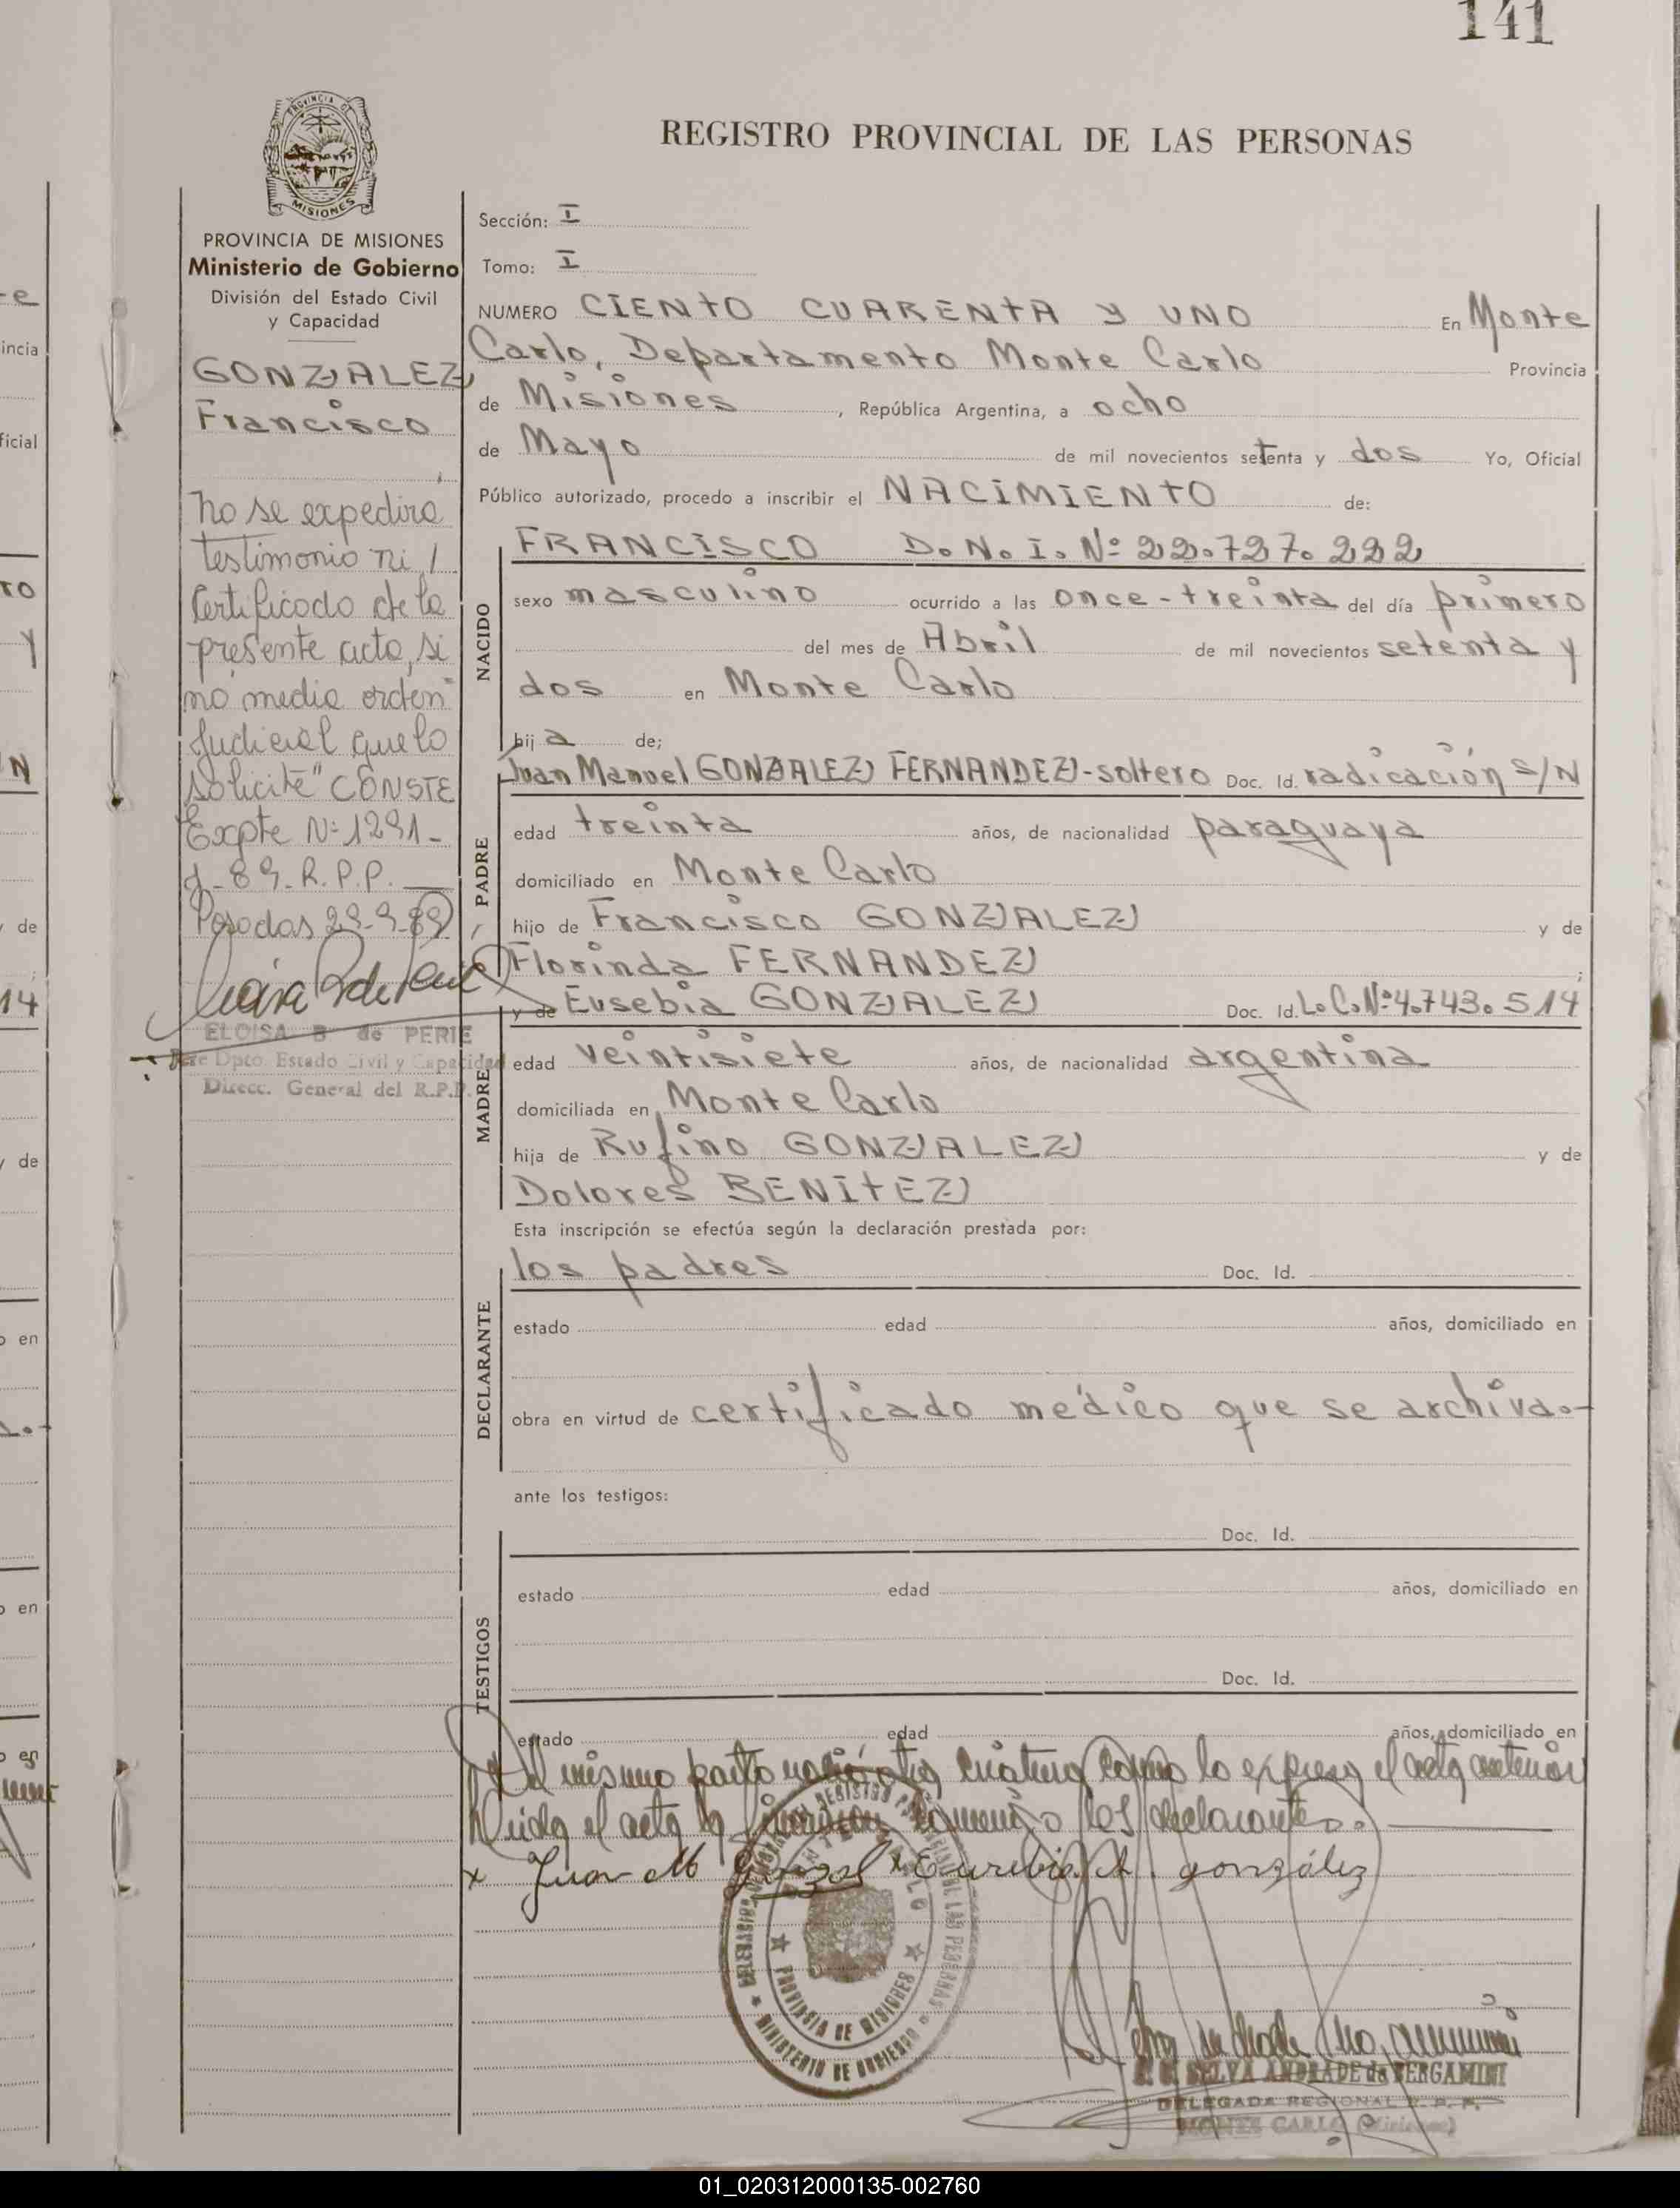 141
REGISTRO PROVINCIAL DE LAS PERSONAS
PROVINCIA DE
MISIONES
PROVINCIA DE MISIONES
Ministerio de Gobierno
División del Estado Civil
y Capacidad
GONZALEZ
Francisco
No se expedira
testimonio ni /
Certificado de la
presente acta, si
no media orden
Judicial que lo
solicite" CONSTE
Expte Nº 1291-
89. R.P.P.
Posadas 29-9-89
ELOISA B de PERIE
Jefe Dpto Estado Civil y Capacidad
Direcc. General del R.P.P.
Sección: I
Tomo: I
NUMERO CIENTO CUARENTA Y UNO En Monte
Carlo, Departamento Monte Carlo Provincia
de Misiones, República Argentina, a ocho
de Mayo de mil novecientos setenta y dos Yo, Oficial
Público autorizado, procedo a inscribir el NACIMIENTO de:
NACIDO
FRANCISCO D.N.I. Nº 22.727.222
sexo masculino ocurrido a las once-treinta del día primero
del mes de Abril de mil novecientos setenta y
dos en Monte Carlo
hija de;
PADRE
Juan Manuel GONZALEZ FERNANDEZ-soltero Doc. Id. radicación S/N
edad treinta años, de nacionalidad paraguaya
domiciliado en Monte Carlo
hijo de Francisco GONZALEZ y de
Florinda FERNANDEZ ;
MADRE
y de Eusebia GONZALEZ Doc. Id. L.C.Nº 4.743.514
edad veintisiete años, de nacionalidad argentina
domiciliada en Monte Carlo
hija de Rufino GONZALEZ y de
Dolores BENITEZ
Esta inscripción se efectúa según la declaración prestada por:
DECLARANTE
los padres Doc. Id.
estado edad años, domiciliado en
obra en virtud de certificado médico que se archiva.-
ante los testigos:
TESTIGOS
Doc. Id.
estado edad años, domiciliado en
Doc. Id.
estado edad años, domiciliado en
Del mismo parto nació otra criatura como lo expresa el acta anterior
Leida el acta la firman conmigo los declarantes.
x Juan M Gonzal x Eusebia A. gonzález
PROVINCIA DE MISIONES
MINISTERIO DE GOBIERNO
SELVA ANDRADE de BERGAMINI
DELEGADA REGIONAL R. P. P.
MONTE CARLO (Misiones)
01_020312000135-002760